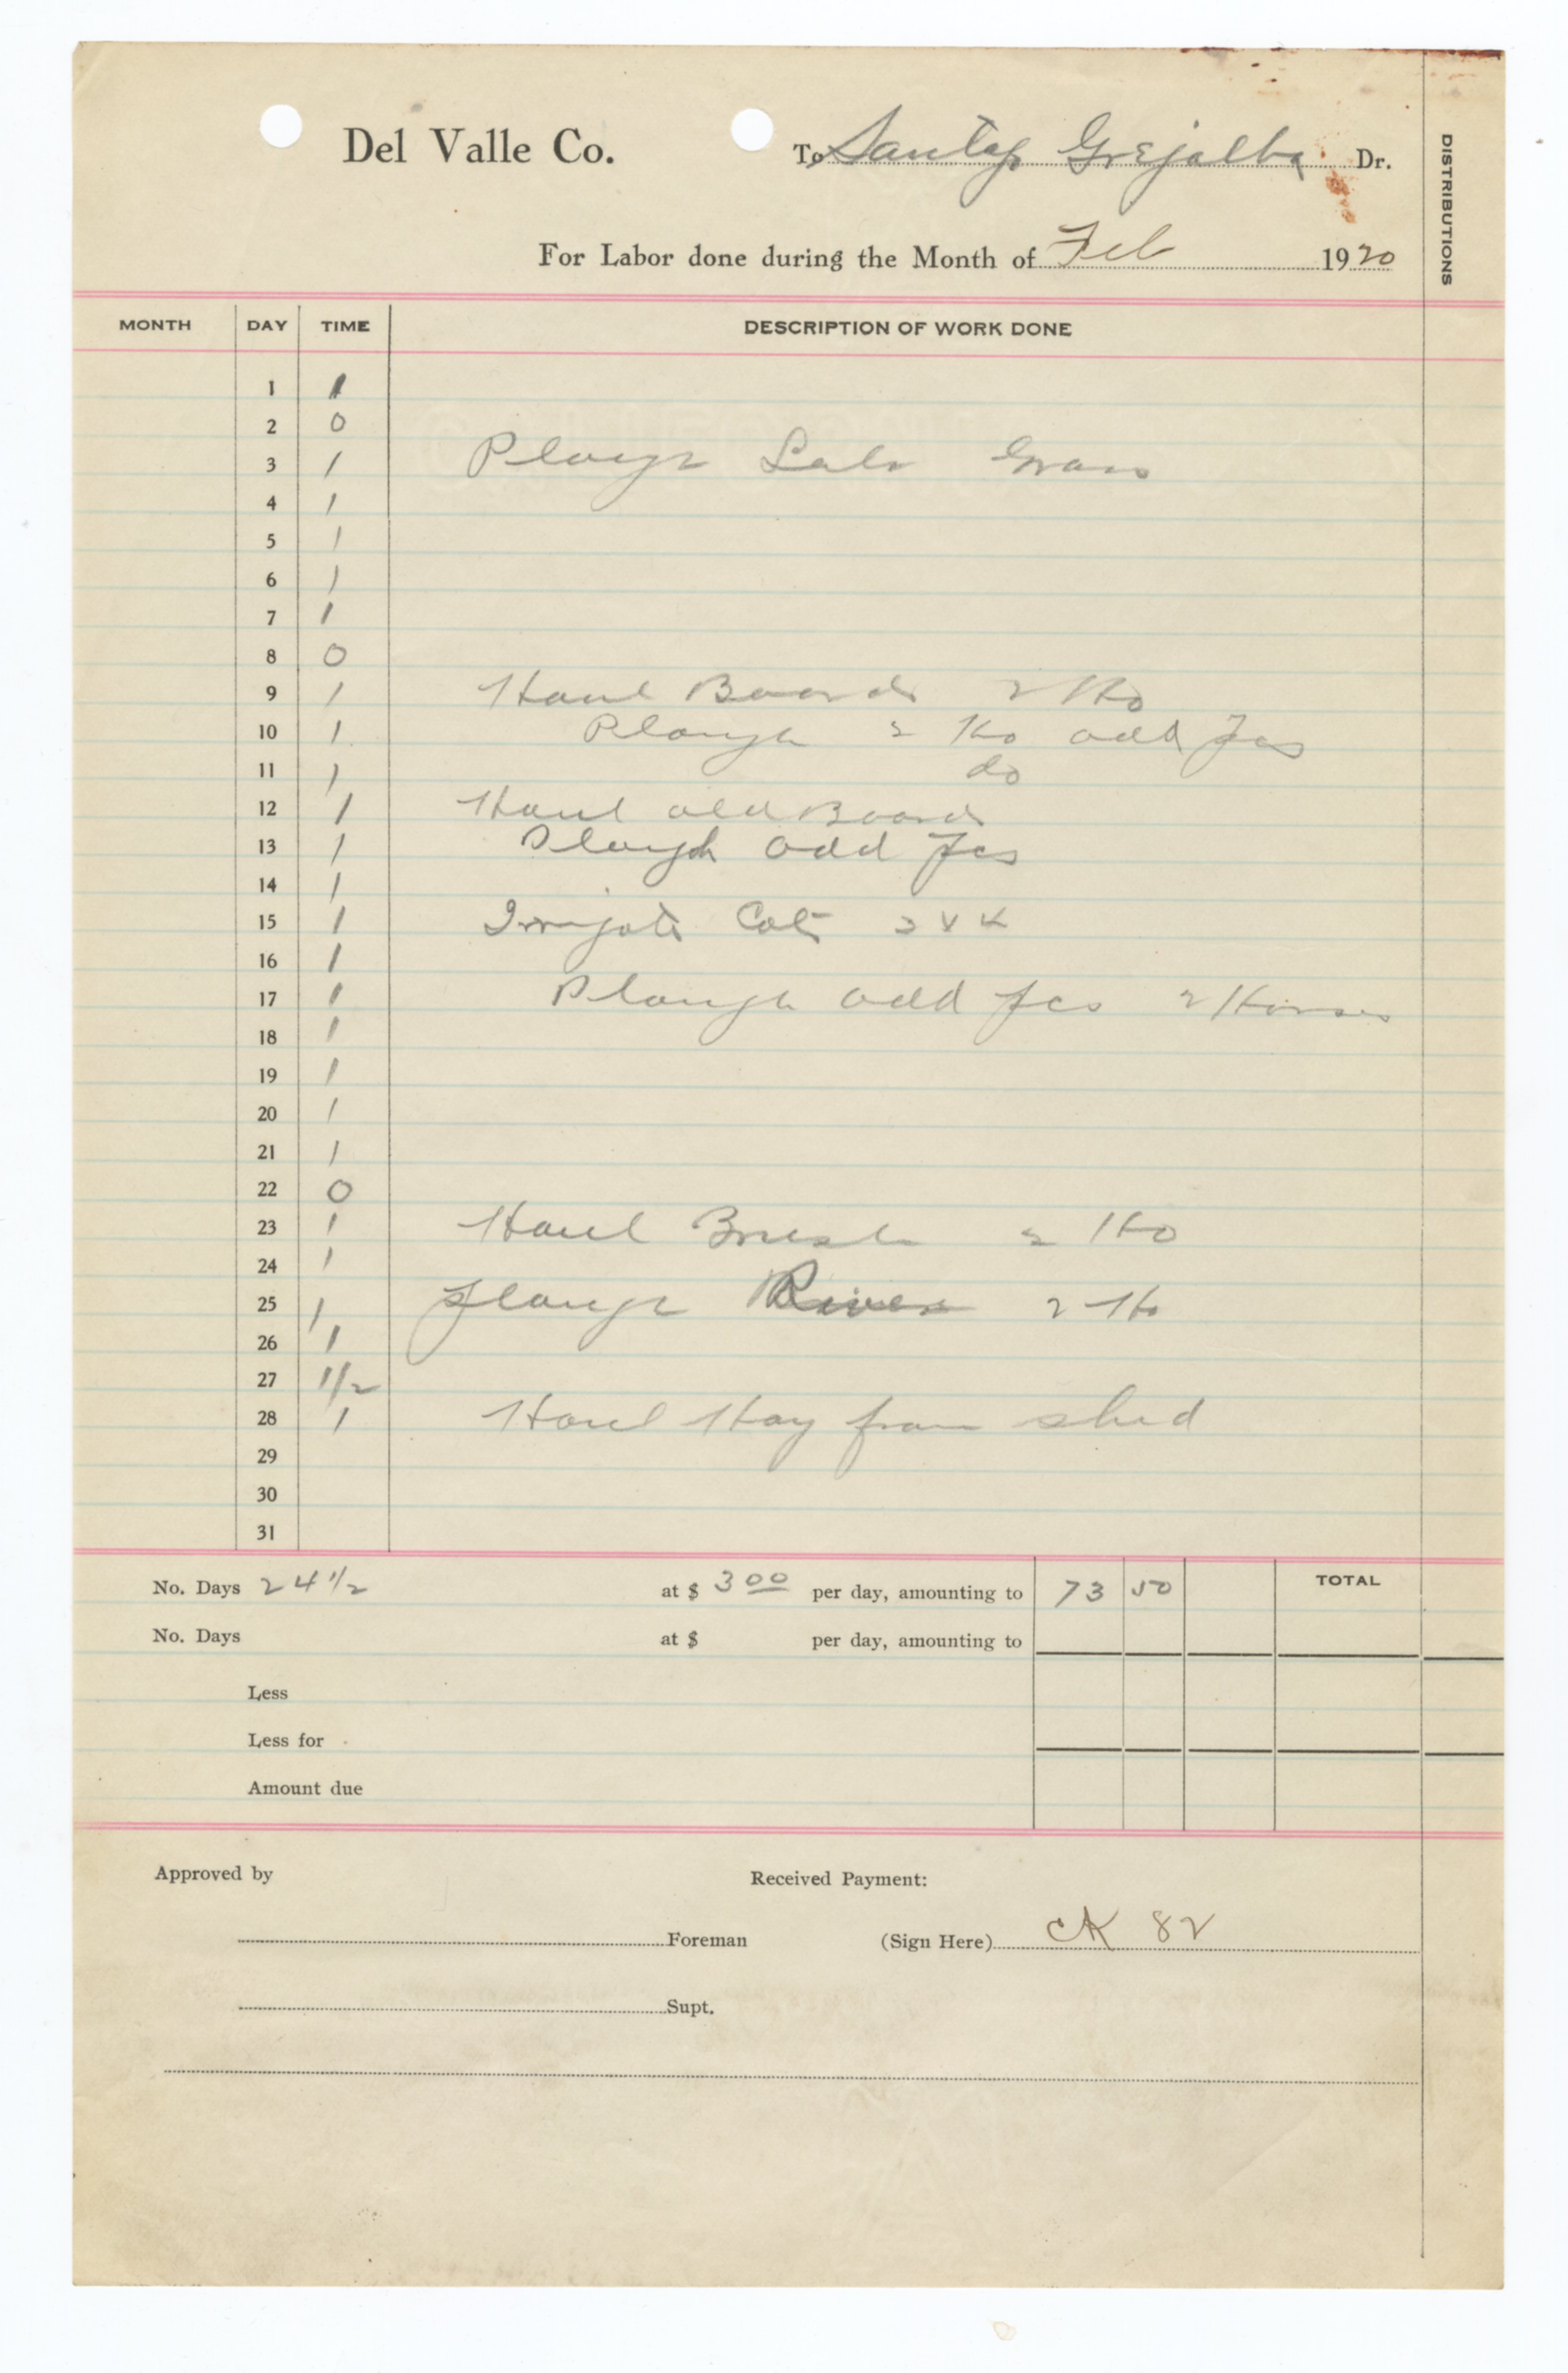 Del Valle Co.
To Santos Grejalba Dr.
DISTRIBUTIONS
For Labor done during the Month of Feb 1920
MONTH DAY TIME DESCRIPTION OF WORK DONE
1 1
2 0
3 1 Plough Grass
4 1
5 1
6 1
7 1
8 0
9 1 Haul Boards 2 Ho
10 1 Plough 2 Ho odd Jcs
11 1 do
12 1 Haul old Boards
13 1 Plough odd Jcs
14 1
15 1 Irrigate
16 1
17 1 Plough odd Jcs 2 Horses
18 1
19 1
20 1
21 1
22 0
23 1 Haul Brush 2 Ho
24 1
25 1 Plough River 2 Ho
26 1
27 1/2
28 1 Haul Hay from shed
29
30
31
No. Days 24 1/2 at $ 3 00 per day, amounting to 73 50 TOTAL
No. Days at $ per day, amounting to
Less
Less for
Amount due
Approved by Received Payment:
Foreman (Sign Here) CK 82
Supt.